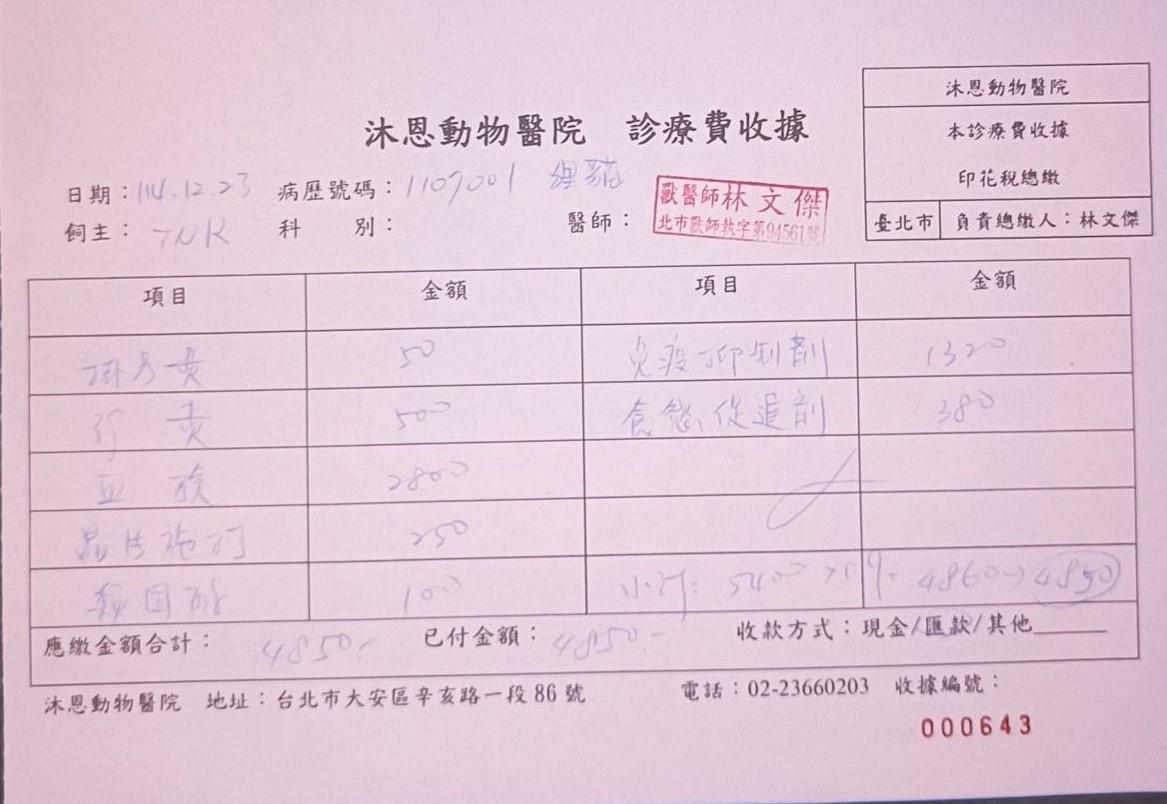 沐恩動物醫院
本診療費收據
印花稅總繳
臺北市 負責總繳人：林文傑
沐恩動物醫院 診療費收據
日期：114.12.23 病歷號碼：1107001
飼主：TNR 科 別： 醫師：
獸醫師林文傑
北市獸師執字第94561號
項目 金額 項目 金額
掛号費 50 免疫抑制劑 1320
診費 500 食慾促進劑 380
血檢 2800
晶片施打 250
類固醇 100 小計: 5400 4860→4850
應繳金額合計：4850.- 已付金額：4850.- 收款方式：現金/匯款/其他
沐恩動物醫院 地址：台北市大安區辛亥路一段86號 電話：02-23660203 收據編號：
000643